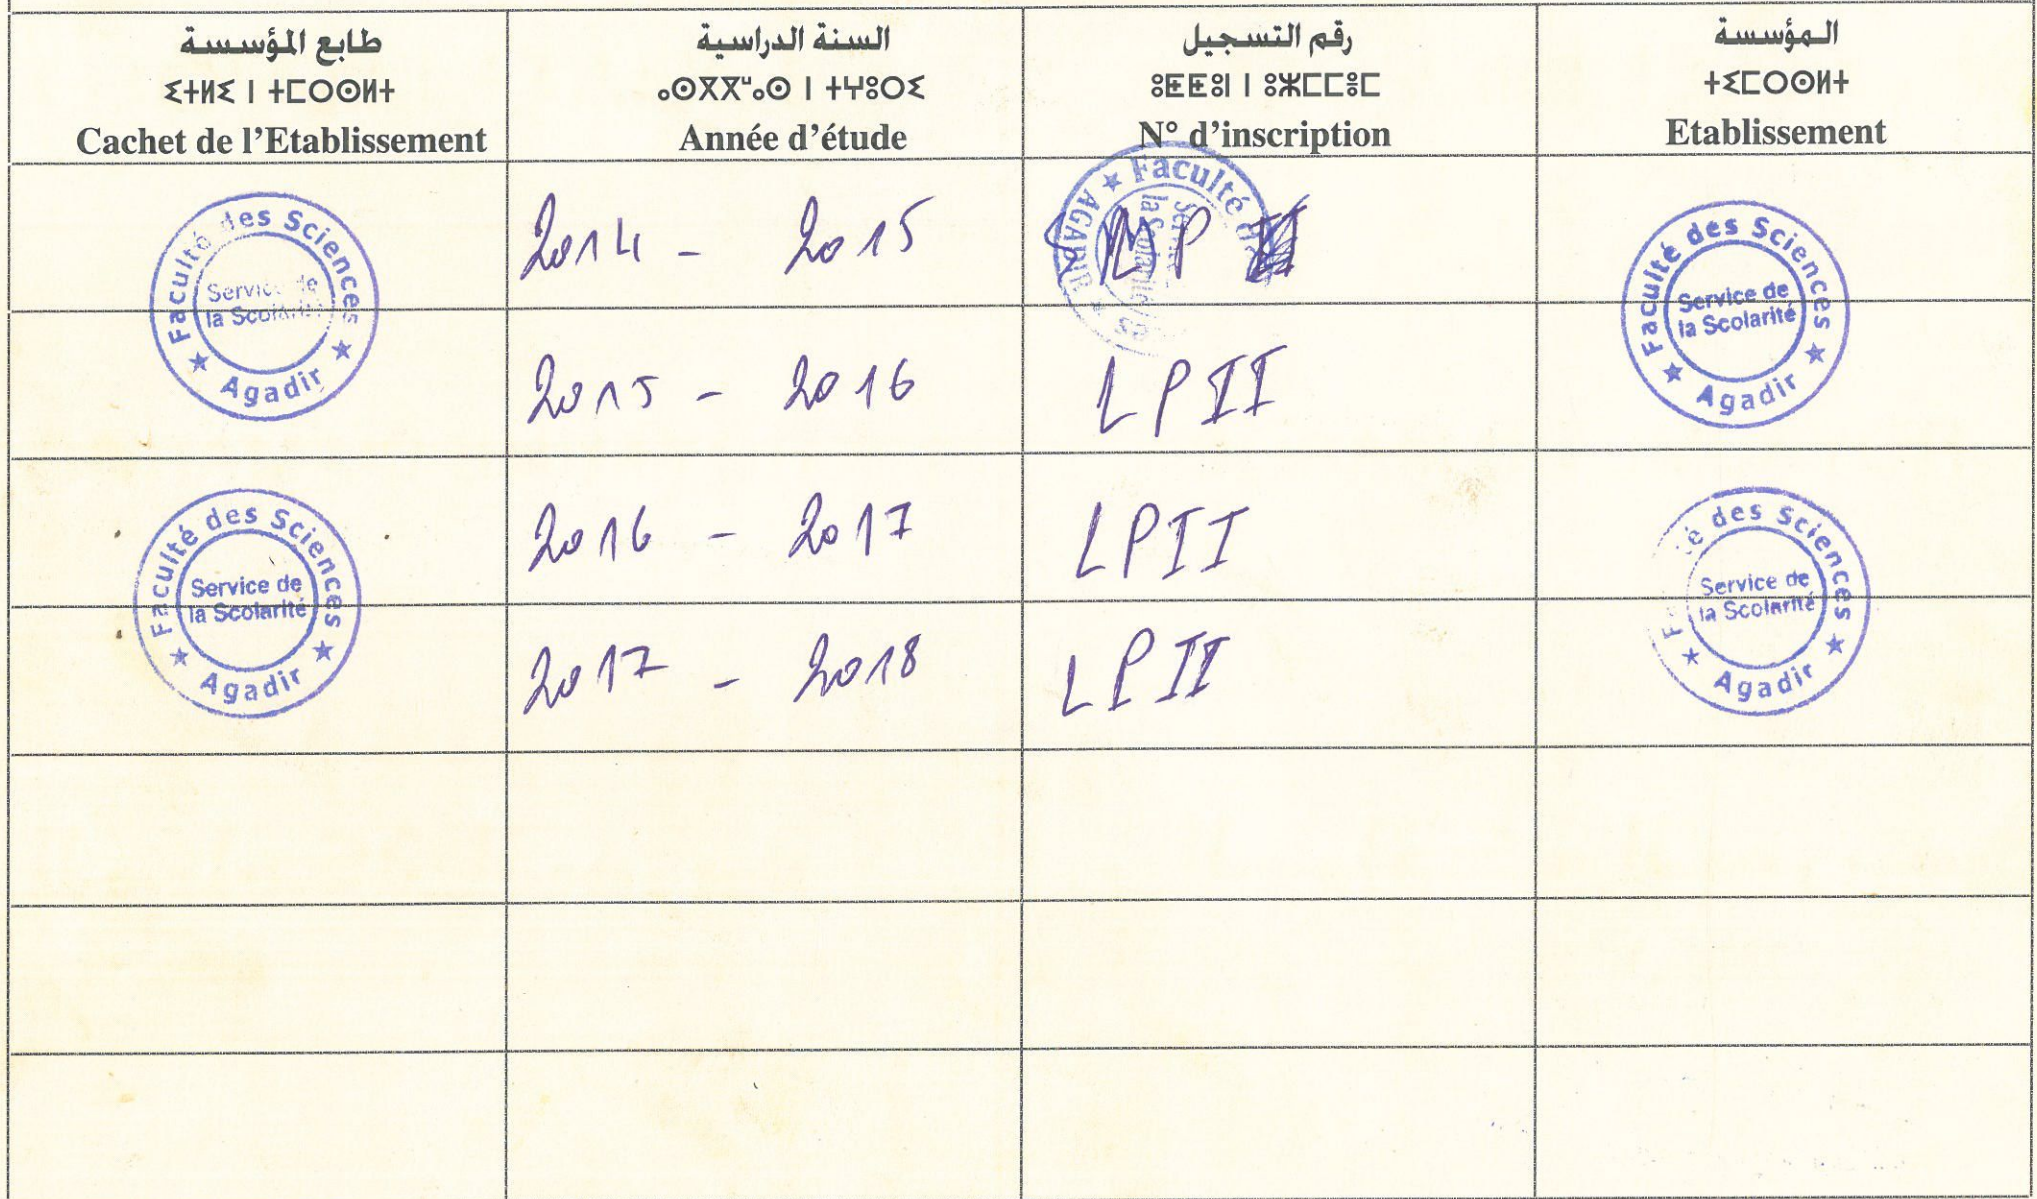 طابع المؤسسة
ⵉⵜⵍⵉ ⵏ ⵜⵎⵔⵙⵍⵜ
Cachet de l'Etablissement
السنة الدراسية
ⴰⵙⴳⴳⵯⴰⵙ ⵏ ⵜⵖⵓⵔⵉ
Année d'étude
رقم التسجيل
ⵓⵟⵟⵓⵏ ⵏ ⵓⵣⵎⵎⵓⵎ
N° d'inscription
المؤسسة
ⵜⵉⵎⵔⵙⵍⵜ
Etablissement
Faculté des Sciences
Service de
la Scolarité
★ Agadir ★
2014 - 2015
★ Faculté
Service
la Scolarité
AGADIR
Faculté des Sciences
Service de
la Scolarité
★ Agadir ★
2015 - 2016
LPII
Faculté des Sciences
Service de
la Scolarité
★ Agadir ★
2016 - 2017
LPII
des Sciences
Service de
la Scolarité
★ Agadir ★
2017 - 2018
LPII